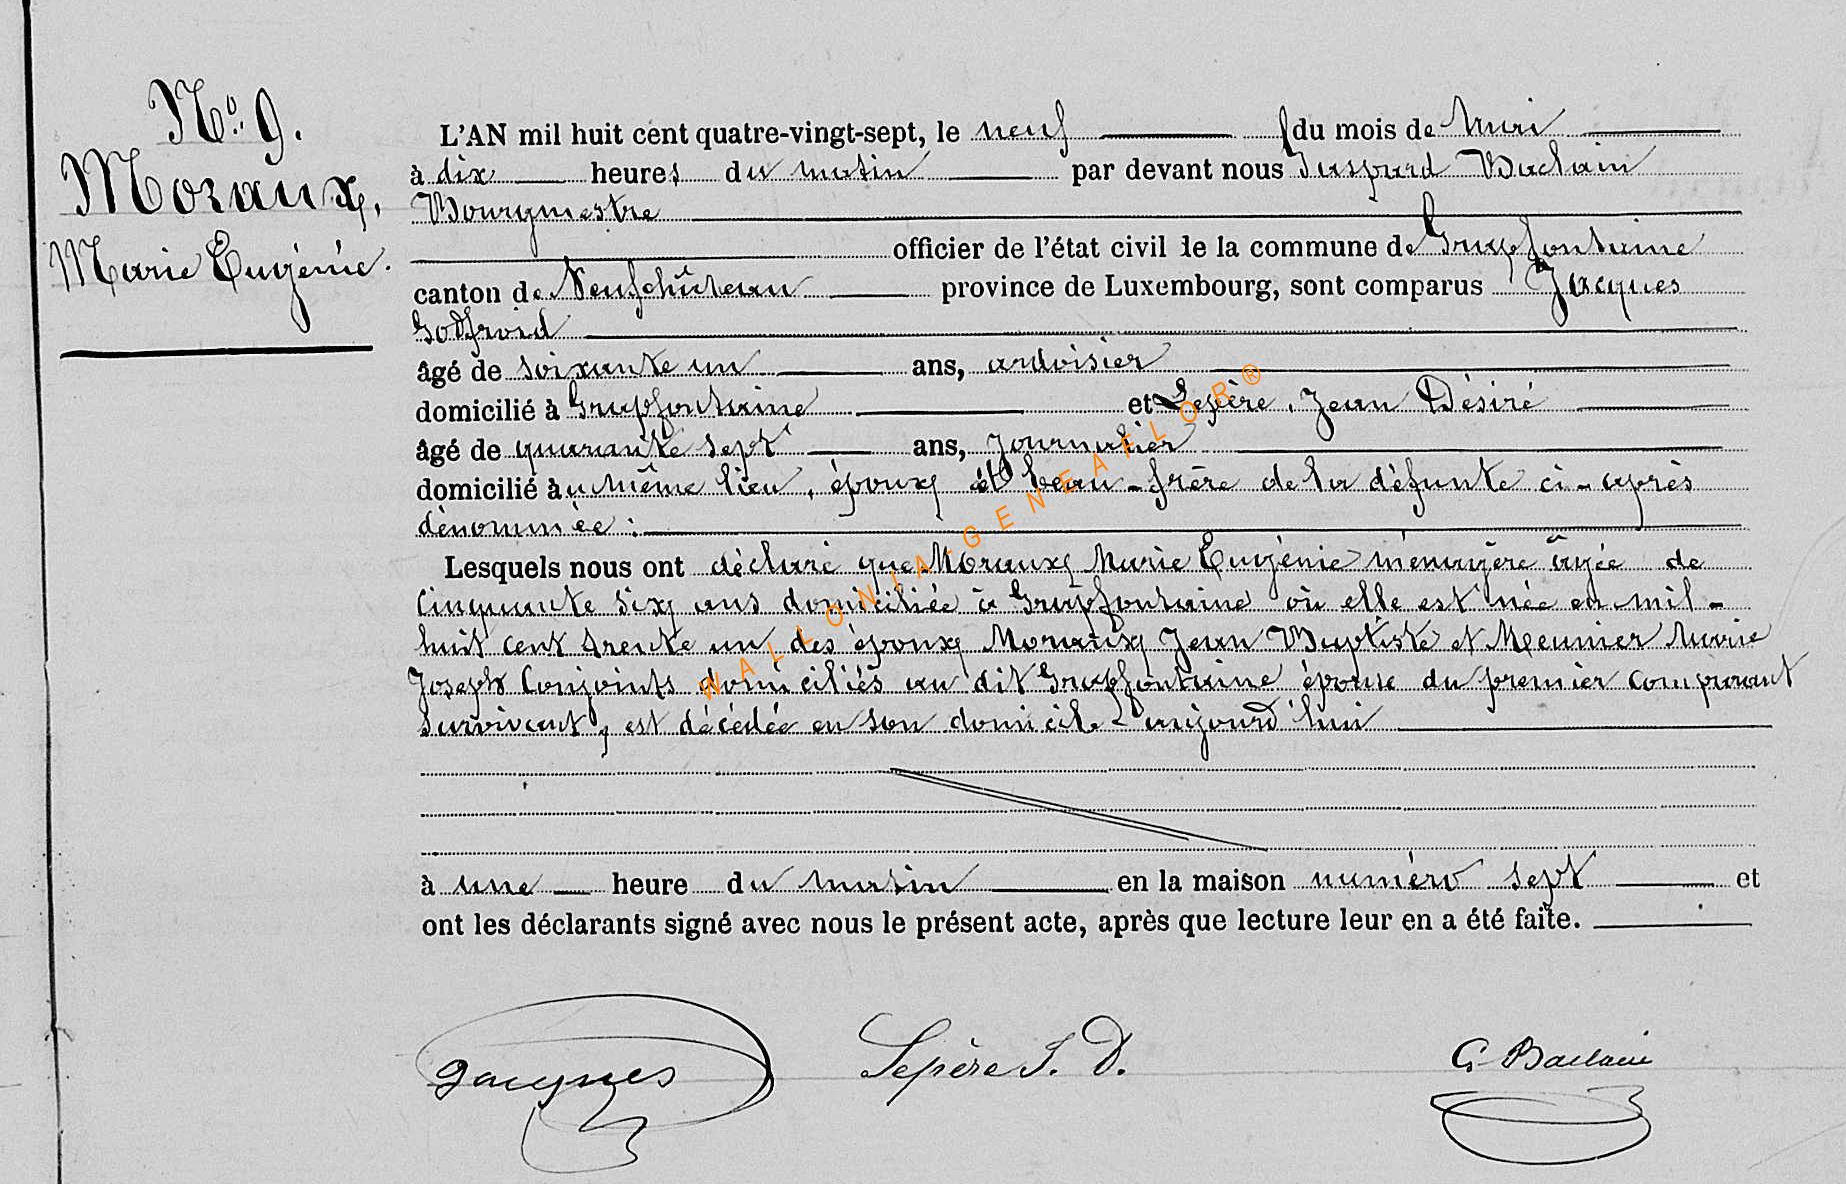 N° 9.
Moraux,
Marie Eugénie.
L'AN mil huit cent quatre-vingt-sept, le neuf du mois de Mai
à dix heures du matin par devant nous Gaspard Baclain
Bourgmestre
officier de l'état civil de la commune de Grapfontaine
canton de Neufchâteau province de Luxembourg, sont comparus Jacques
Godfroid
âgé de soixante un ans, ardoisier
domicilié à Grapfontaine et Lepère, Jean Désiré
âgé de quarante sept ans, journalier
domicilié au même lieu, époux et beau-frère de la défunte ci-après
dénommée :
Lesquels nous ont déclaré que Moraux Marie Eugénie ménagère âgée de
Cinquante six ans domiciliée à Grapfontaine où elle est née en mil-
huit cent trente un des époux Moraux Jean Baptiste et Meunier Marie
Joseph Conjoints domiciliés au dit Grapfontaine épouse du premier comparant
survivant, est décédée en son domicile aujourd'hui
à une heure du matin en la maison numéro sept et
ont les déclarants signé avec nous le présent acte, après que lecture leur en a été faite.
Jacques Lepère J. D. G. Baclain
WALLONIA-GENEAFLOR®